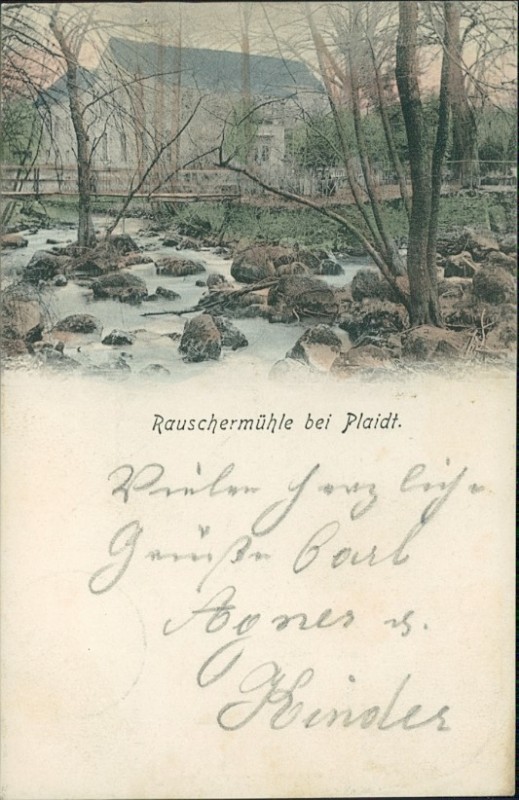 Rauschermühle bei Plaidt.
Vielen herzliche
Grüße Carl
Agnes u.
Kinder